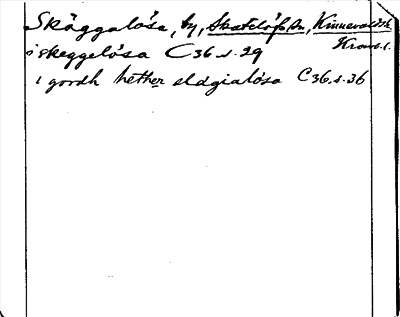 Skäggalösa, by, Skatelöfs sn, Kinnevalds h.
Kronob. l.
i skeggelösa C36 s. 29
i gordh hether skägialösa C36 s. 36